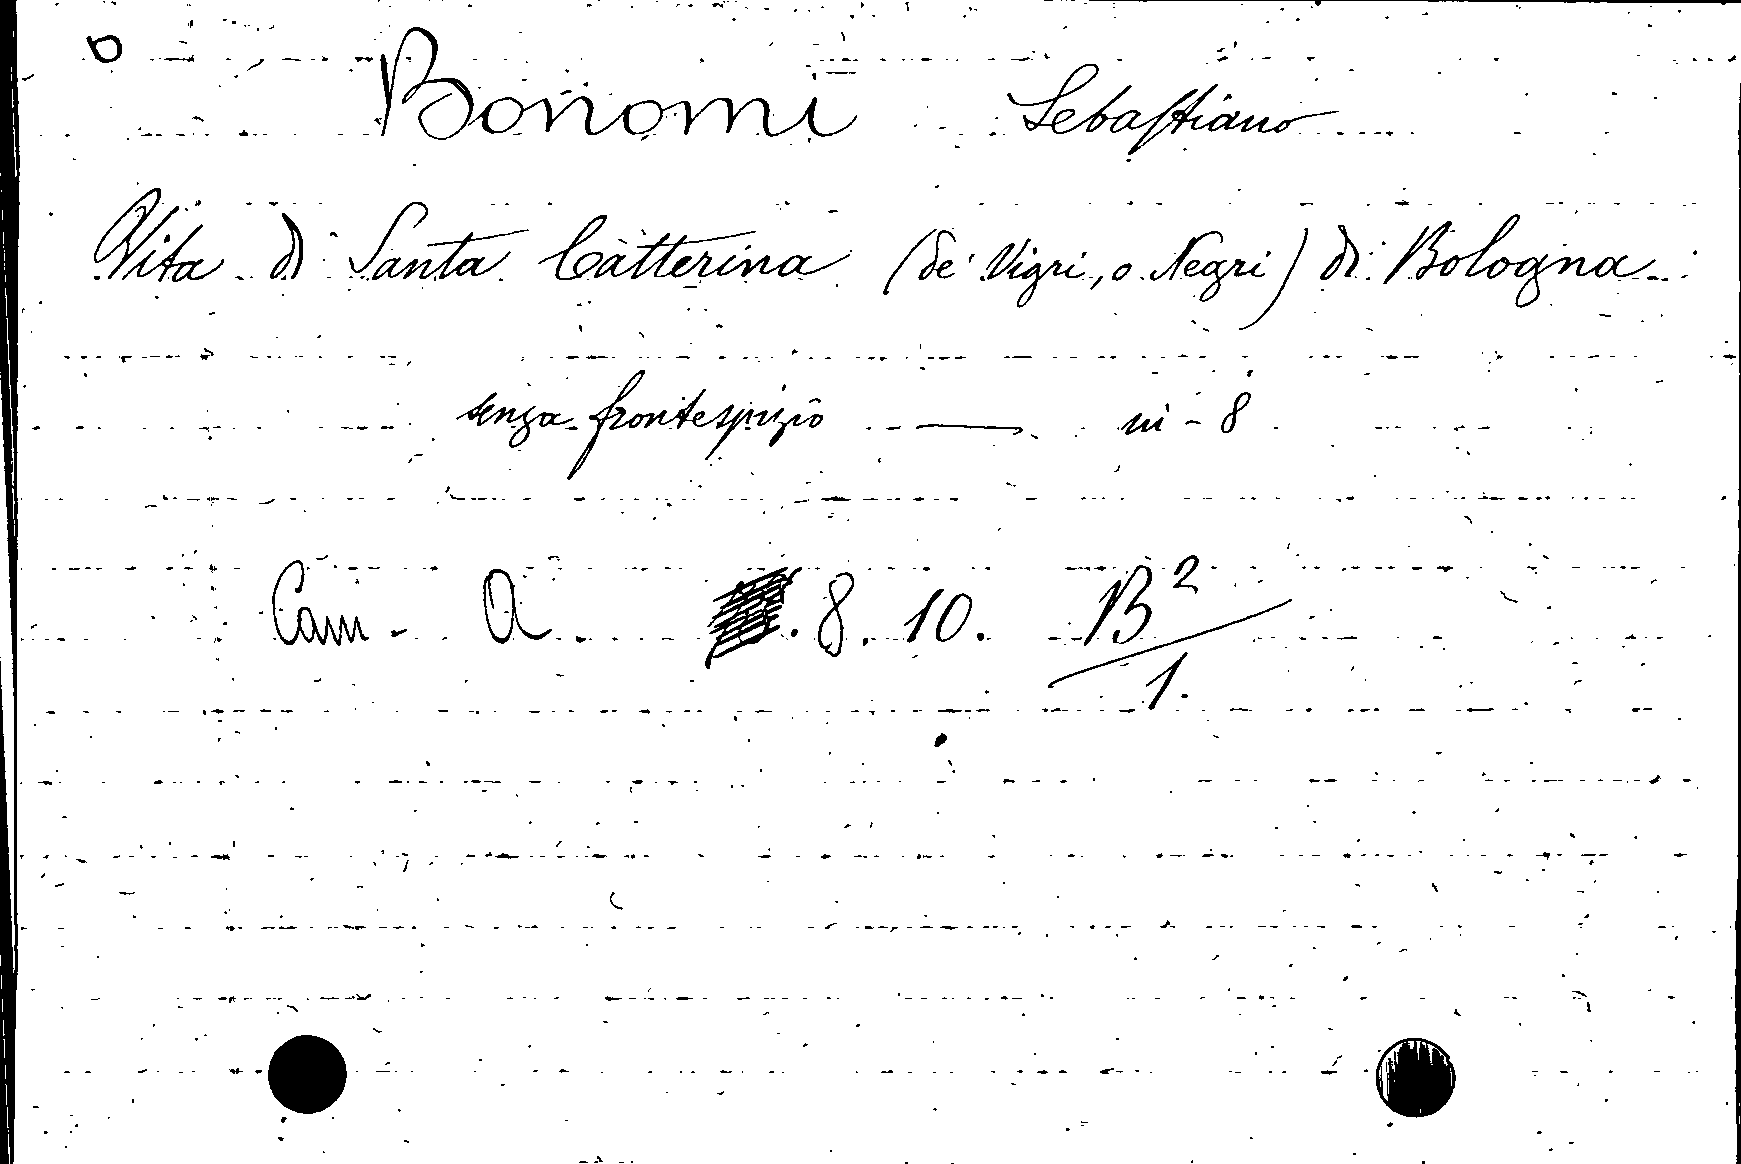 Bonomi Sebastiano
Vita di Santa Catterina (de' Vigri, o Negri) di Bologna
senza frontespizio — in-8
Cam. A .8.10. B²/1.